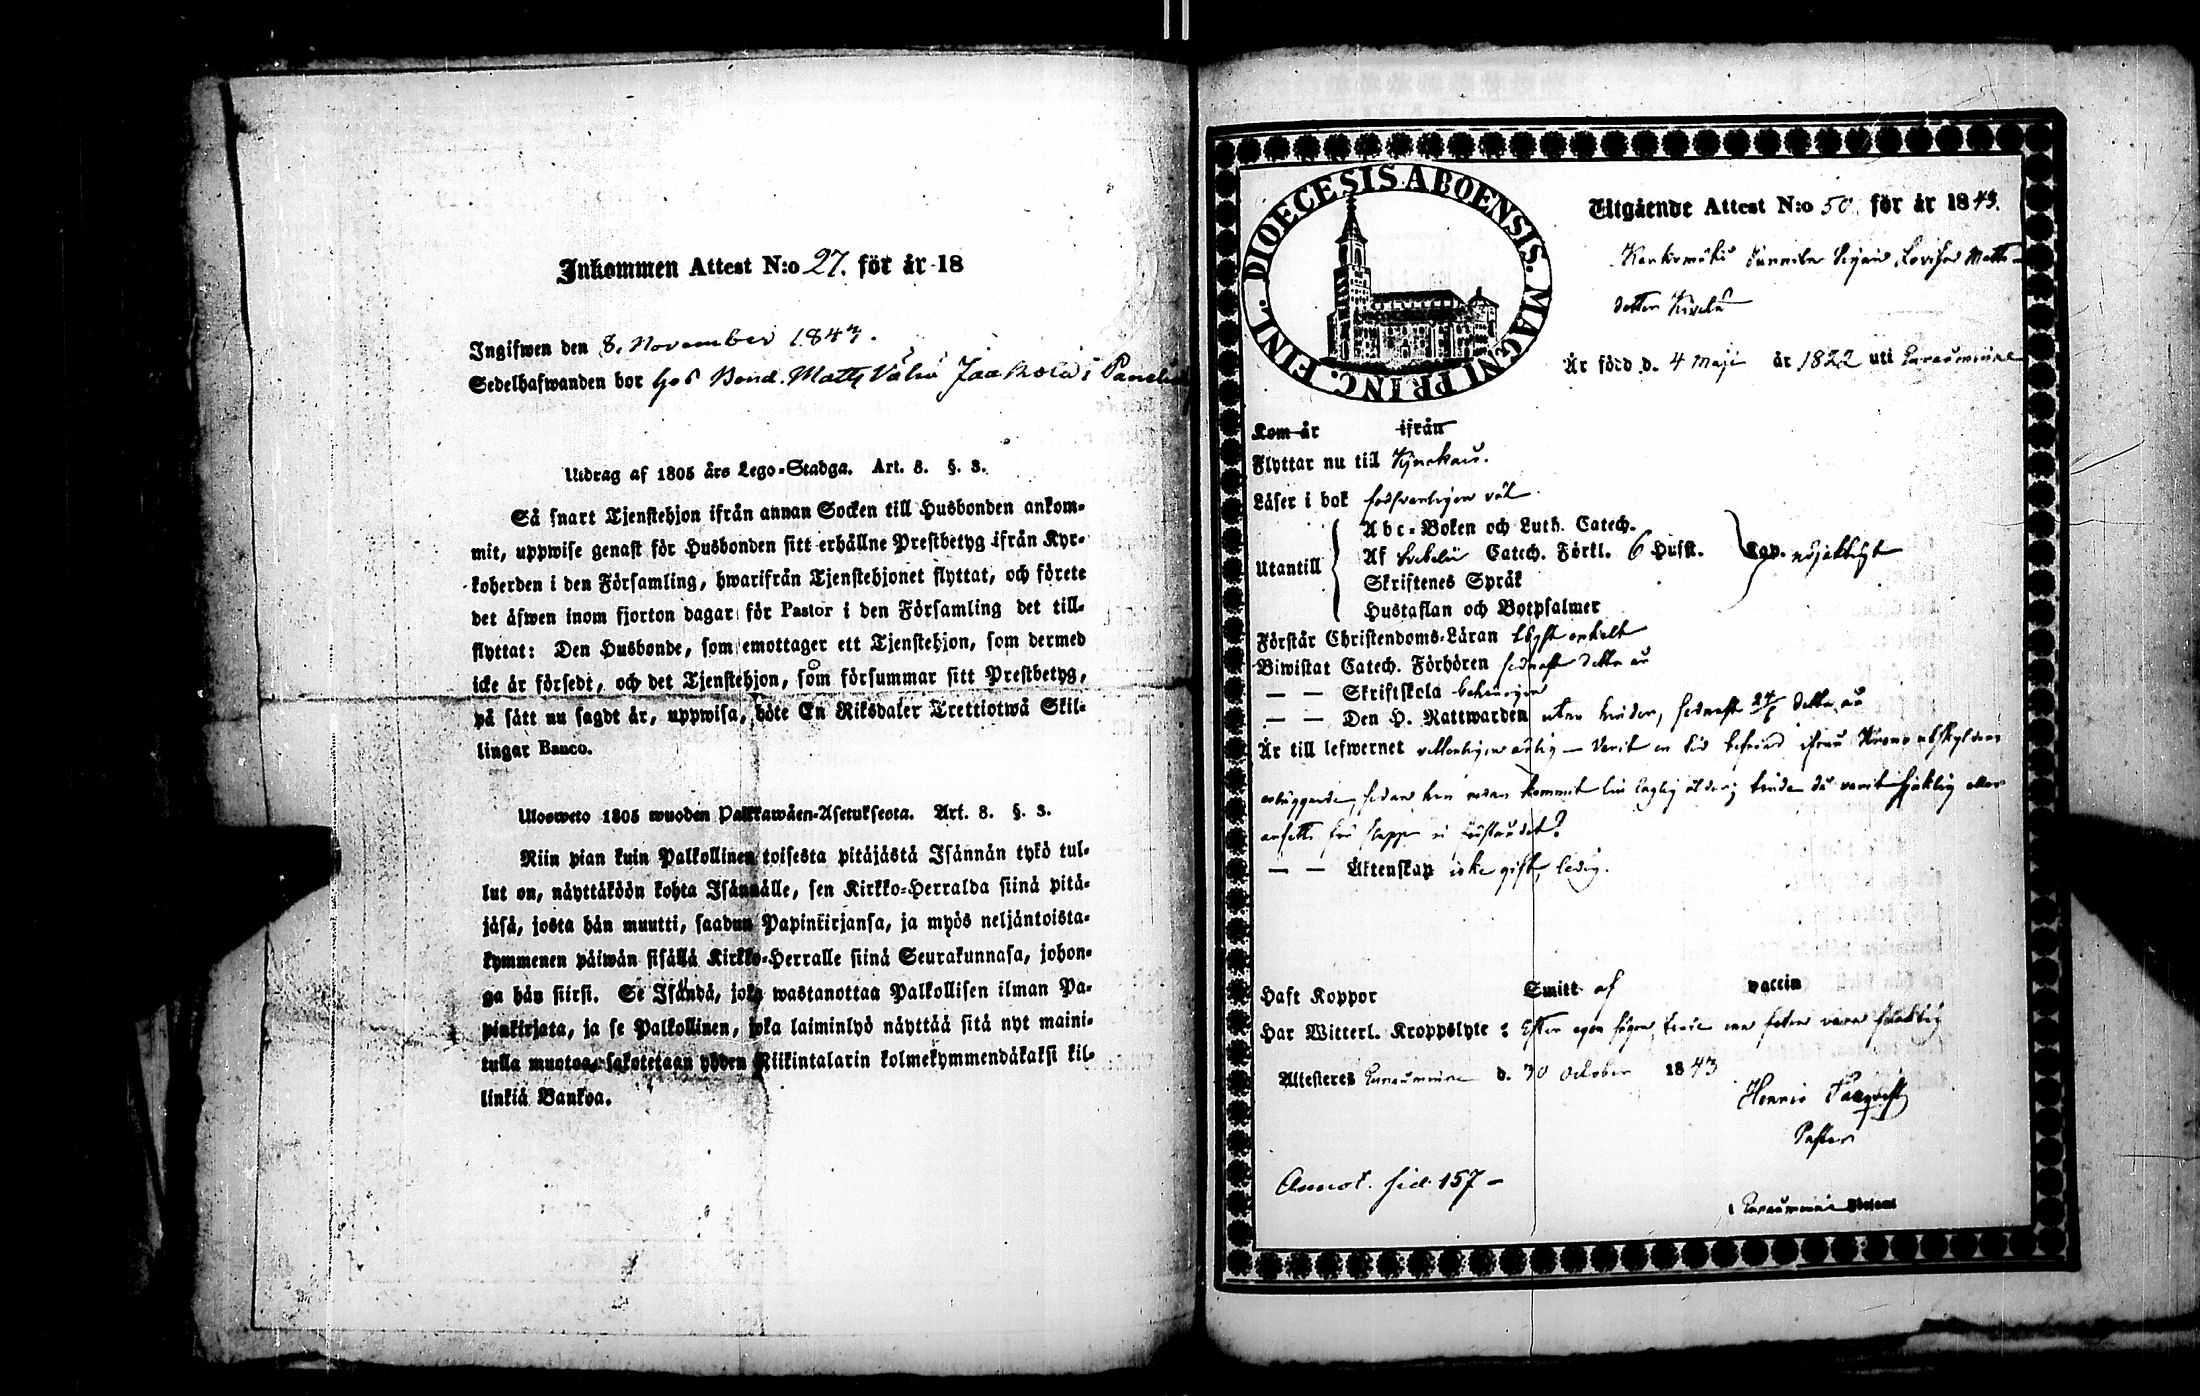 Inkommen Attest N:o 27. för år 18
Ingifwen den 8. November 1843.
Sedelhafwanden bor hos Bond. Matts Jaakola i Panelia
Utdrag af 1805 års Lego-Stadga. Art. 8. §. 3.
Så snart Tjenstehjon ifrån annan Socken till Husbonden ankom-
mit, uppwise genast för Husbonden sitt erhållne Prestbetyg ifrån Kyr-
koherden i den Församling, hwarifrån Tjenstehjonet flyttat, och förete
det äfwen inom fjorton dagar för Pastor i den Församling det till-
flyttat: Den Husbonde, som emottager ett Tjenstehjon, som dermed
icke är försedt, och det Tjenstehjon, som försummar sitt Prestbetyg,
på sätt nu sagdt är, uppwisa, böte En Riksdaler Trettiotwå Skil-
lingar Banco.
Ulosweto 1805 wuoden Palkkawäen-Asetuksesta. Art. 8. §. 3.
Niin pian kuin Palkollinen toisesta pitäjästä Isännän tykö tul-
lut on, näyttäköön kohta Isännälle, sen Kirkko-Herralda siinä pitä-
jäsä, josta hän muutti, saadun Papinkirjansa, ja myös neljäntoista-
kymmenen päiwän sisällä Kirkko-Herralle siinä Seurakunnasa, johon-
ga hän siirsi. Se Isändä, joka wastanottaa Palkollisen ilman Pa-
pinkirjata, ja se Palkollinen, joka laiminlyö näyttää sitä nyt maini-
tulla muotoa, sakotetaan yhden Riikintalarin kolmekymmendäkaksi kil-
linkiä Bankoa.
FINL. DIOECESIS ABOENSIS. MAGNI PRINC.
Utgående Attest N:o 50. för år 1843.
Lovisa Matts-
dotter
Är född d. 4 Maji år 1822 uti Euraåminne
Kom år ifrån
Flyttar nu till
Läser i bok försvarligen väl
Utantill
Abc-Boken och Luth. Catech.
Af Svebelii Catech. Förkl. 6 Hufst. Cap. nöjaktigt
Skriftenes Språk
Hustaflan och Botpsalmer
Förstår Christendoms-Läran högst enkelt
Biwistat Catech. Förhören sednast detta år
— — Skriftskola behörigen
— — Den H. Nattwarden utan hinder, sednast 24/6 detta år
Är till lefwernet
— — Äktenskap icke gift, ledig.
Haft Koppor Smitt af vaccin
Har Witterl. Kroppslyte: Efter egen sägen
Attesteres Euraåminne d. 30 October 1843
Henric
Pastor
Annot. sid. 157 –
i Euraåminne Församl